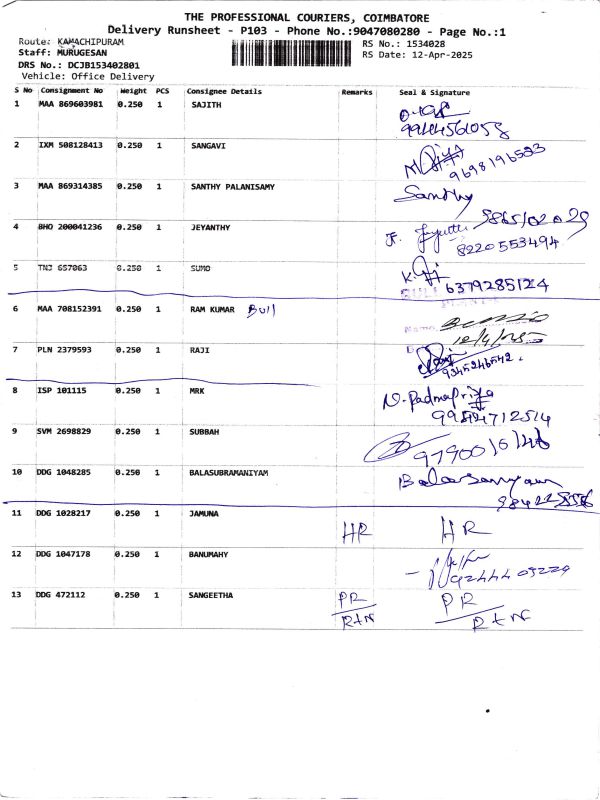 THE PROFESSIONAL COURIERS, COIMBATORE
Delivery Runsheet - P103 - Phone No.:9047080280 - Page No.:1
Route: KAMACHIPURAM
RS No.: 1534028
Staff: MURUGESAN
RS Date: 12-Apr-2025
DRS No.: DCJB153402801
Vehicle: Office Delivery
S No Consignment No Weight PCS Consignee Details Remarks Seal & Signature
1 MAA 869603981 0.250 1 SAJITH
2 IXM 508128413 0.250 1 SANGAVI
9698196533
3 MAA 869314385 0.250 1 SANTHY PALANISAMY Santhy
4 BHO 200041236 0.250 1 JEYANTHY
8220553494
5 TNJ 657063 0.250 1 SUMO
6379285124
6 MAA 708152391 0.250 1 RAM KUMAR Bull
7 PLN 2379593 0.250 1 RAJI
9345246542.
8 ISP 101115 0.250 1 MRK N. Padmapriya
9 SVM 2698829 0.250 1 SUBBAH
10 DDG 1048285 0.250 1 BALASUBRAMANIYAM
11 DDG 1028217 0.250 1 JAMUNA HR HR
12 DDG 1047178 0.250 1 BANUMAHY
13 DDG 472112 0.250 1 SANGEETHA PR PR
RtN RtN